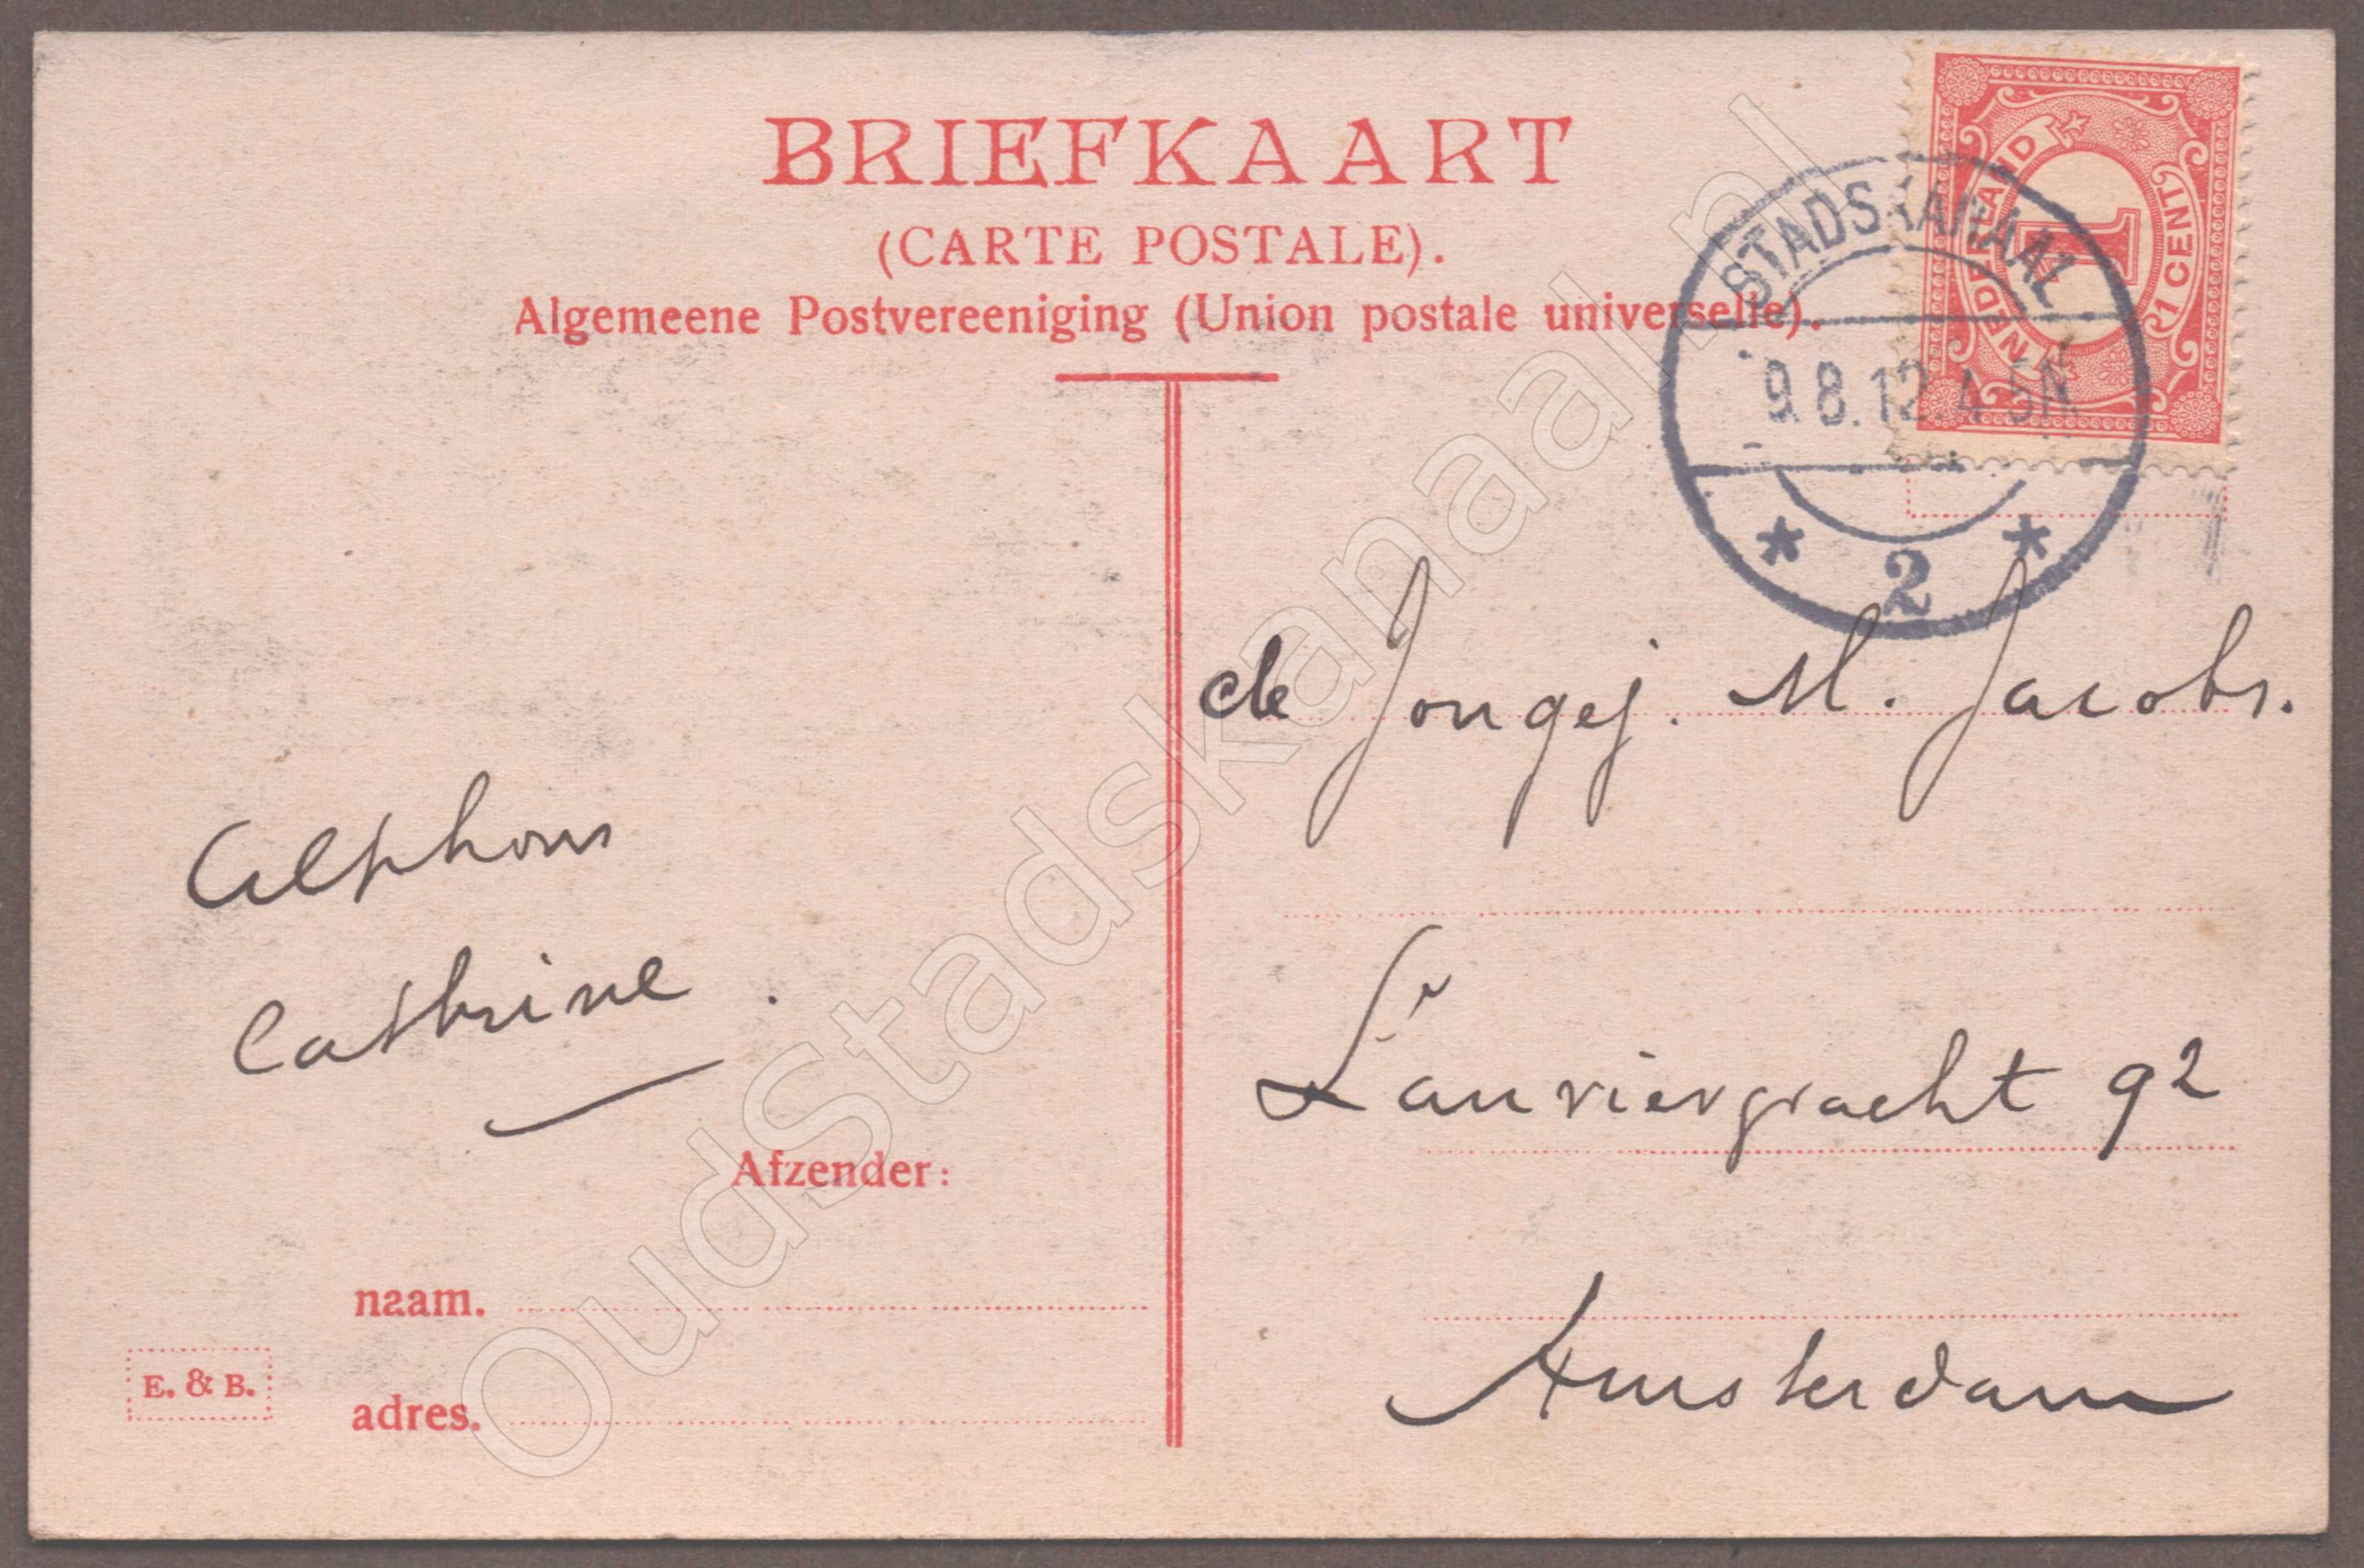 BRIEFKAART
(CARTE POSTALE).
Algemeene Postvereeniging (Union postale universelle).
NEDERLAND
1
1 CENT
STADSKANAAL
9.8.12.4-5N
* 2 *
de Jongej. M. Jacobs.
Lauriergracht 92
Amsterdam
Alphons
Cathrine.
Afzender:
naam.
adres.
E. & B.
OudStadskanaal.nl